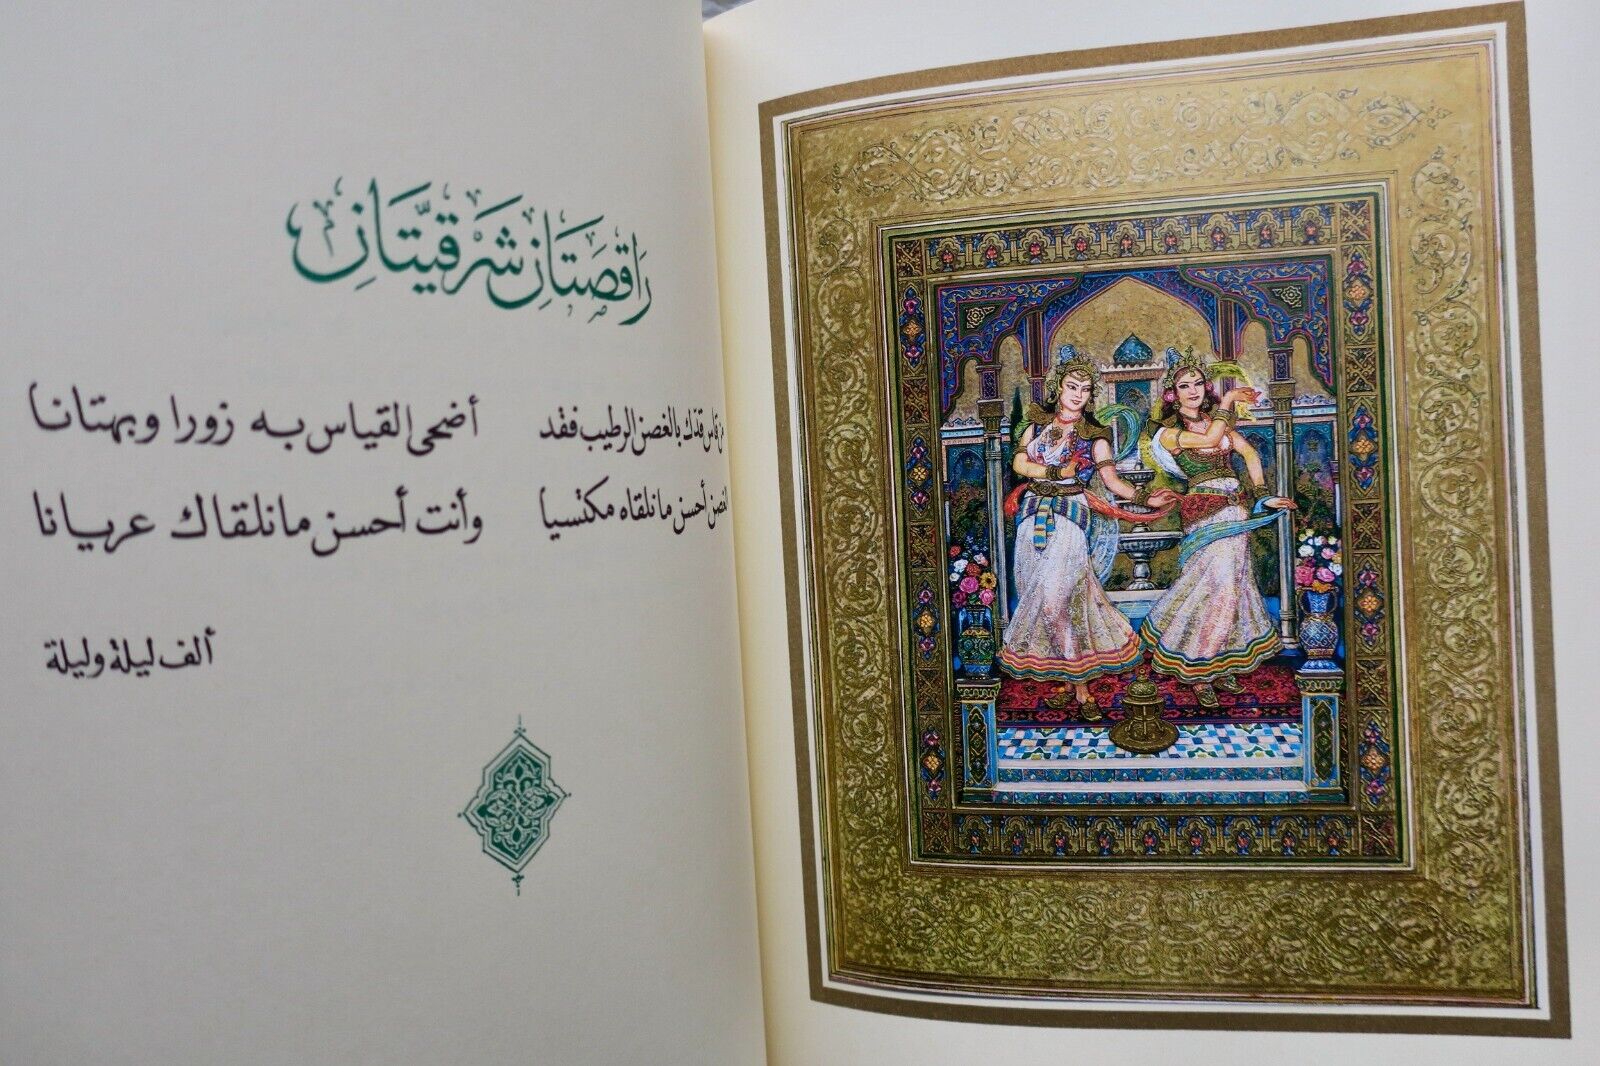 رَاقِصَتَانِ شَرْقِيَّتَانِ
قاس قدك بالغصن الرطيب فقد أضحى القياس به زورا وبهتانا
الغصن أحسن مانلقاه مكتسيا وأنت أحسن مانلقاك عريانا
ألف ليلة وليلة